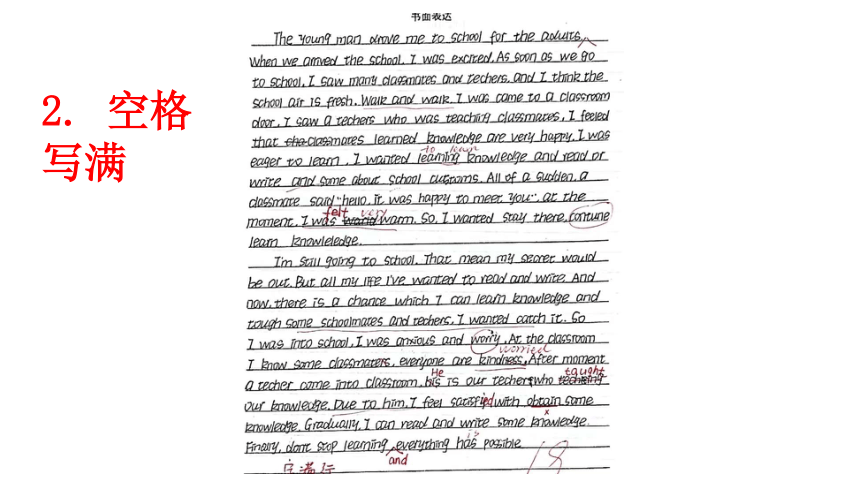 书面表达
2. 空格
写满
The young man drove me to school for the adults.
When we arrived the school, I was excited. As soon as we go
to school, I saw many classmates and techers, and I think the
school air is fresh. Walk and walk. I was came to a classroom
door, I saw a techers who was teaching classmates, I feeled
that the classmates learned knowledge are very happy. I was
to learn
eager to learn, I wanted learning knowledge and read or
write and some about school customs. All of a sudden, a
classmate said "hello, it was happy to meet you". at the
felt very
moment, I was world warm. So, I wanted stay there, contune
learn knoweledge.
I'm still going to school. That mean my secret would
be out. But all my life I've wanted to read and write. And
now, there is a chance which I can learn knowledge and
tough some schoolmates and techers, I wanted catch it. So
I was into school, I was anxious and worry. At the classroom
worried
I know some classmaters, everyone are kindness. After moment
He taught
a techer come into classroom, his is our techer, who teching
ied
our knowledge. Due to him, I feel satisfied with obtain some
x
knowledge. Gradually, I can read and write some knowledge.
is
Finally, don't stop learning, everything has possible.
and
18